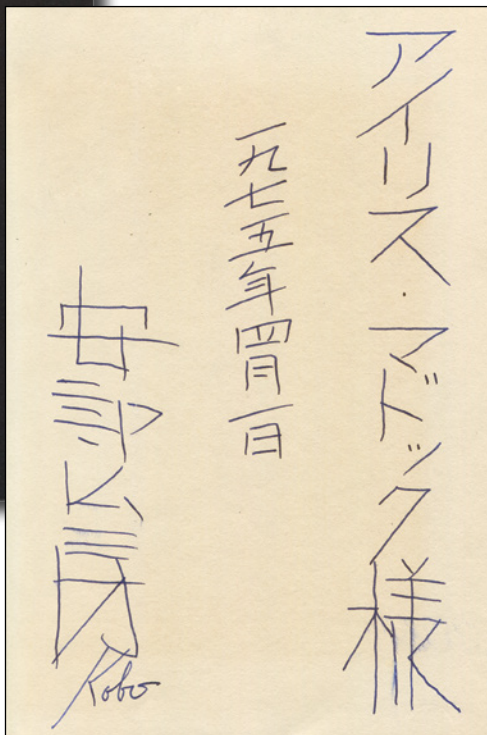 アイリス・マドック様
一九七五年四月一日
安部公房
Kobo